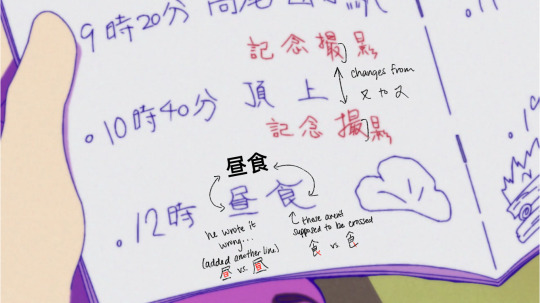 9時20分 高尾山
記念撮影
changes from
又 to 又
10時40分 頂上
記念撮影
昼食
12時 昼食
he wrote it
wrong...
(added another line)
昼 vs. 昼
these arent
supposed to be crossed
食 vs 食